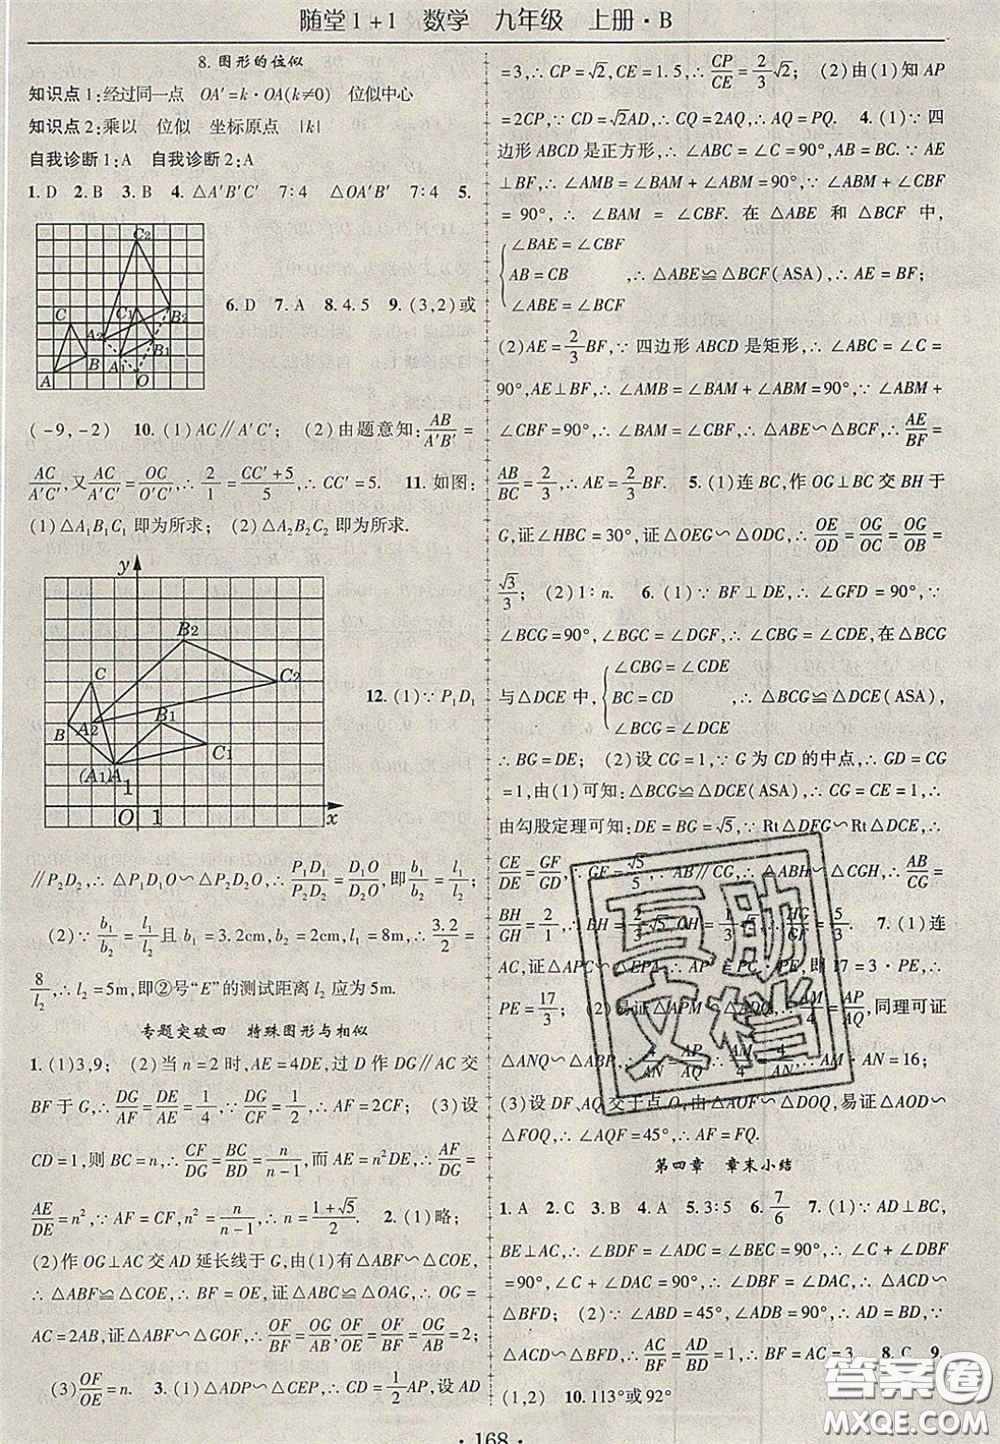 随堂1+1 数学 九年级 上册·B
8. 图形的位似
知识点1:经过同一点 OA′=k·OA(k≠0) 位似中心
知识点2:乘以 位似 坐标原点 |k|
自我诊断1:A 自我诊断2:A
1. D 2. B 3. B 4. △A′B′C′ 7∶4 △OA′B′ 7∶4 5.
C2
C
C1
A2
B2
B1
A
B
A1
O
6. D 7. A 8. 4.5 9. (3,2)或
(-9,-2) 10. (1)AC∥A′C′; (2)由题意知:AB/A′B′=
AC/A′C′,又AC/A′C′=OC/O′C′,∴2/1=(CC′+5)/5,∴CC′=5. 11. 如图:
(1)△A₁B₁C₁即为所求; (2)△A₂B₂C₂即为所求.
y
B2
C
C2
B
A2
B1
C1
(A1)A
1
O 1 x
12. (1)∵P₁D₁
∥P₂D₂,∴△P₁D₁O∽△P₂D₂O,∴P₁D₁/P₂D₂=D₁O/D₂O,即b₁/b₂=l₁/l₂;
(2)∵b₁/b₂=l₁/l₂且b₁=3.2cm,b₂=2cm,l₁=8m,∴3.2/2=
8/l₂,∴l₂=5m,即②号“E”的测试距离l₂应为5m.
专题突破四 特殊图形与相似
1. (1)3,9; (2)当n=2时,AE=4DE,过D作DG∥AC交
BF于G,∴DG/AF=DE/AE=1/4,∵DG/CF=1/2,∴AF=2CF; (3)设
CD=1,则BC=n,∴CF/DG=BC/BD=n/(n-1),而AE=n²DE,∴AF/DG=
AE/DE=n²,∵AF=CF,∴n²=n/(n-1),∴n=(1+√5)/2. 2. (1)略;
(2)作OG⊥AC交AD延长线于G,由(1)有△ABF∽△COE,
∴△ABF≌△COE,∴BF=OE,证△ABC∽△OAG,∴OG=
AC=2AB,证△ABF∽△GOF,∴OF/BF=OF/OE=OG/AB=2;
(3)OF/OE=n. 3. (1)△ADP∽△CEP,∴CD=1/2AP,设AD
=3,∴CP=√2,CE=1.5,∴CP/CE=2/3√2; (2)由(1)知AP
=2CP,∵CD=√2AD,∴CQ=2AQ,∴AQ=PQ. 4. (1)∵四
边形ABCD是正方形,∴∠ABC=∠C=90°,AB=BC.∵AE
⊥BF,∴∠AMB=∠BAM+∠ABM=90°,∵∠ABM+∠CBF
=90°,∴∠BAM=∠CBF. 在△ABE和△BCF中,
∠BAE=∠CBF
AB=CB ,∴△ABE≌△BCF(ASA),∴AE=BF;
∠ABE=∠BCF
(2)AE=2/3BF,∵四边形ABCD是矩形,∴∠ABC=∠C=
90°,AE⊥BF,∴∠AMB=∠BAM+∠ABM=90°,∵∠ABM+
∠CBF=90°,∴∠BAM=∠CBF,∴△ABE∽△BCF,∴AE/BF=
AB/BC=2/3,∴AE=2/3BF. 5. (1)连BC,作OG⊥BC交BH于
G,证∠HBC=30°,证△OEG∽△ODC,∴OE/OD=OG/OC=OG/OB=
√3/3; (2)1∶n. 6. (1)∵BF⊥DE,∴∠GFD=90°,∵
∠BCG=90°,∠BGC=∠DGF,∴∠CBG=∠CDE,在△BCG
与△DCE中,∠CBG=∠CDE
BC=CD ,∴△BCG≌△DCE(ASA),
∠BCG=∠DCE
∴BG=DE; (2)设CG=1,∵G为CD的中点,∴GD=CG
=1,由(1)可知:△BCG≌△DCE(ASA),∴CG=CE=1,∴
由勾股定理可知:DE=BG=√5,∵Rt△DFG∽Rt△DCE,∴
CE/DE=GF/GD,∴GF=√5/5,∵AB∥CG,∴△ABH∽△CGH,∴AB/CG=
BH/GH=2/1,∴BH=2/3√5,GH=1/3√5,∴HG/GF=5/3. 7. (1)连
AC,证△APC∽△EPA,∴PA²=PC·PE,即17=3·PE,∴
PE=17/3; (2)证△APM∽△ ,∴4/AQ=AM/AP,同理可证
△ANQ∽△ABP,∴4/AN=AP/AQ,∴AM/4=4/AN,∴AM·AN=16;
(3)设DF、AQ交于点O,由△AOF∽△DOQ,易证△AOD∽
△FOQ,∴∠AFQ=45°,∴AF=FQ.
第四章 章末小结
1. A 2. C 3. B 4. A 5. 3∶5 6. 7/6 7. (1)∵AD⊥BC,
BE⊥AC,∴∠BDF=∠ADC=∠BEC=90°,∴∠C+∠DBF
=90°,∠C+∠DAC=90°,∴∠DBF=∠DAC,∴△ACD∽
△BFD; (2)∵∠ABD=45°,∠ADB=90°,∴AD=BD,∵
△ACD∽△BFD,∴AC/BF=AD/BD=1,∴BF=AC=3. 8. C 9.
(1,2) 10. 113°或92°
·168·
互助
文档
答案圈
MXQE.COM